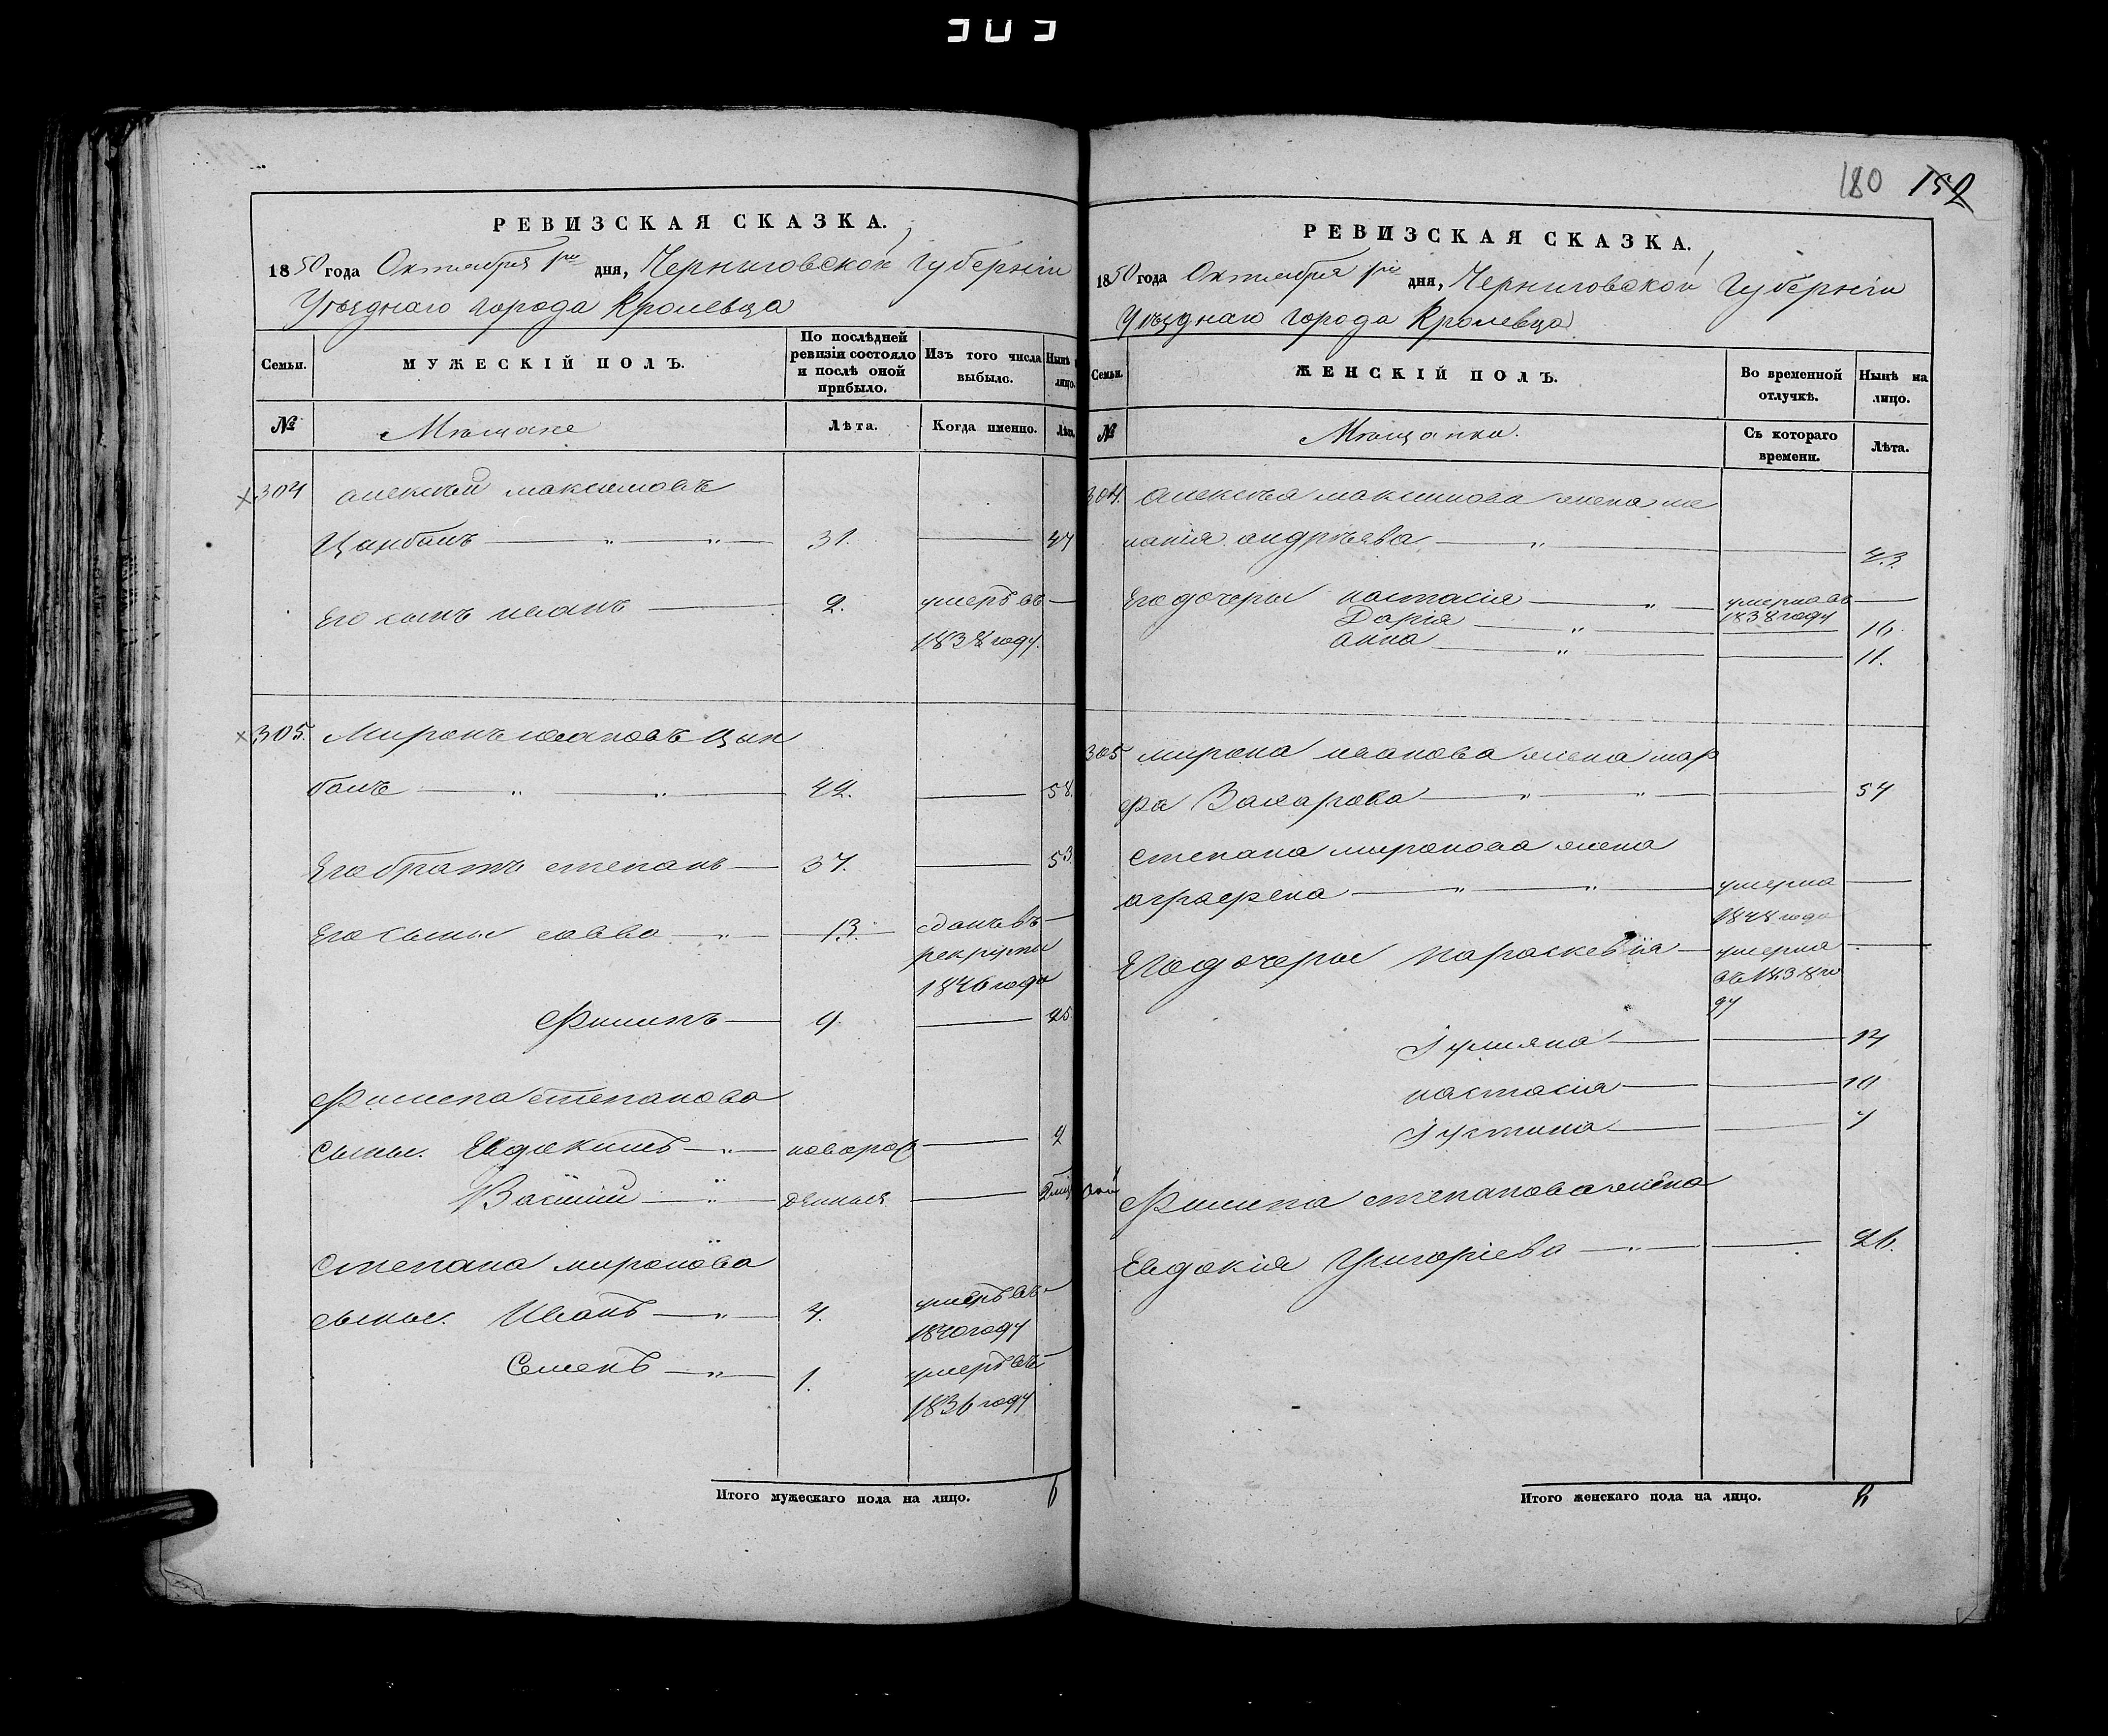 303
РЕВИЗСКАЯ СКАЗКА.
1850 года Октября 1го дня, Черниговской Губерніи
Уѣзднаго города Кролевца
Семьи.
МУЖЕСКІЙ ПОЛЪ.
По послѣдней ревизіи состояло и послѣ оной прибыло.
Изъ того числа выбыло.
Нынѣ лицо.
№
Мѣщане
Лѣта.
Когда именно.
Лѣта.
304 алексѣй максимовъ
31.
Его сынъ иванъ 2. умеръ въ
1838 году.
305. Миронъ ивановъ Цын
балъ 42. 58.
Его братъ степанъ 37. 53.
Его сыны савва 13. сданъ въ
рекруты
1846 года
Филипъ 9. 25.
Филипа степанова
сыны. Евдокимъ новорож 2
Васлий денныя
степана миронова
сыны. Иванъ 4. умеръ въ
1840 году
Семенъ 1. умеръ въ
1836 году
Итого мужескаго пола на лицо. 6
180 152
РЕВИЗСКАЯ СКАЗКА.
1850 года Октября 1го дня, Черниговской Губерніи
Уѣзднаго города Кролевца
Семьи.
ЖЕНСКІЙ ПОЛЪ.
Во временной отлучкѣ.
Нынѣ на лицо.
№
Мѣщанки.
Съ котораго времени.
Лѣта.
304. алексѣя максимова жена ме
ланія андрѣева 43
Его дочеры настасія умерла въ
1838 году
Дарія 16.
анна 11.
305 мирона иванова жена мар
фа Захарова 54
степана миронова жена
аграфена умерла
1848 года
Его дочеры параскевія умерла
въ 1838 го
ду
Іулияна 14
настасія 10
Іустина 7
Филипа степанова жена
Евдокія Григоріева 26.
Итого женскаго пола на лицо. 8